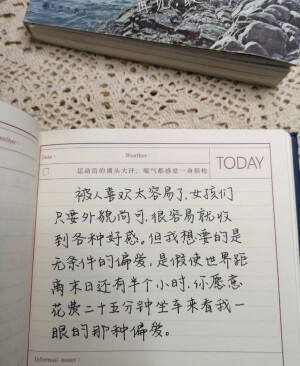 Date :
Weather :
运动后的满头大汗，喘气都感觉一身轻松
TODAY
被人喜欢太容易了，女孩们
只要外貌尚可，很容易就收
到各种好感。但我想要的是
无条件的偏爱，是假使世界距
离末日还有半个小时，你愿意
花费二十五分钟坐车来看我一
眼的那种偏爱。
Informal essay :